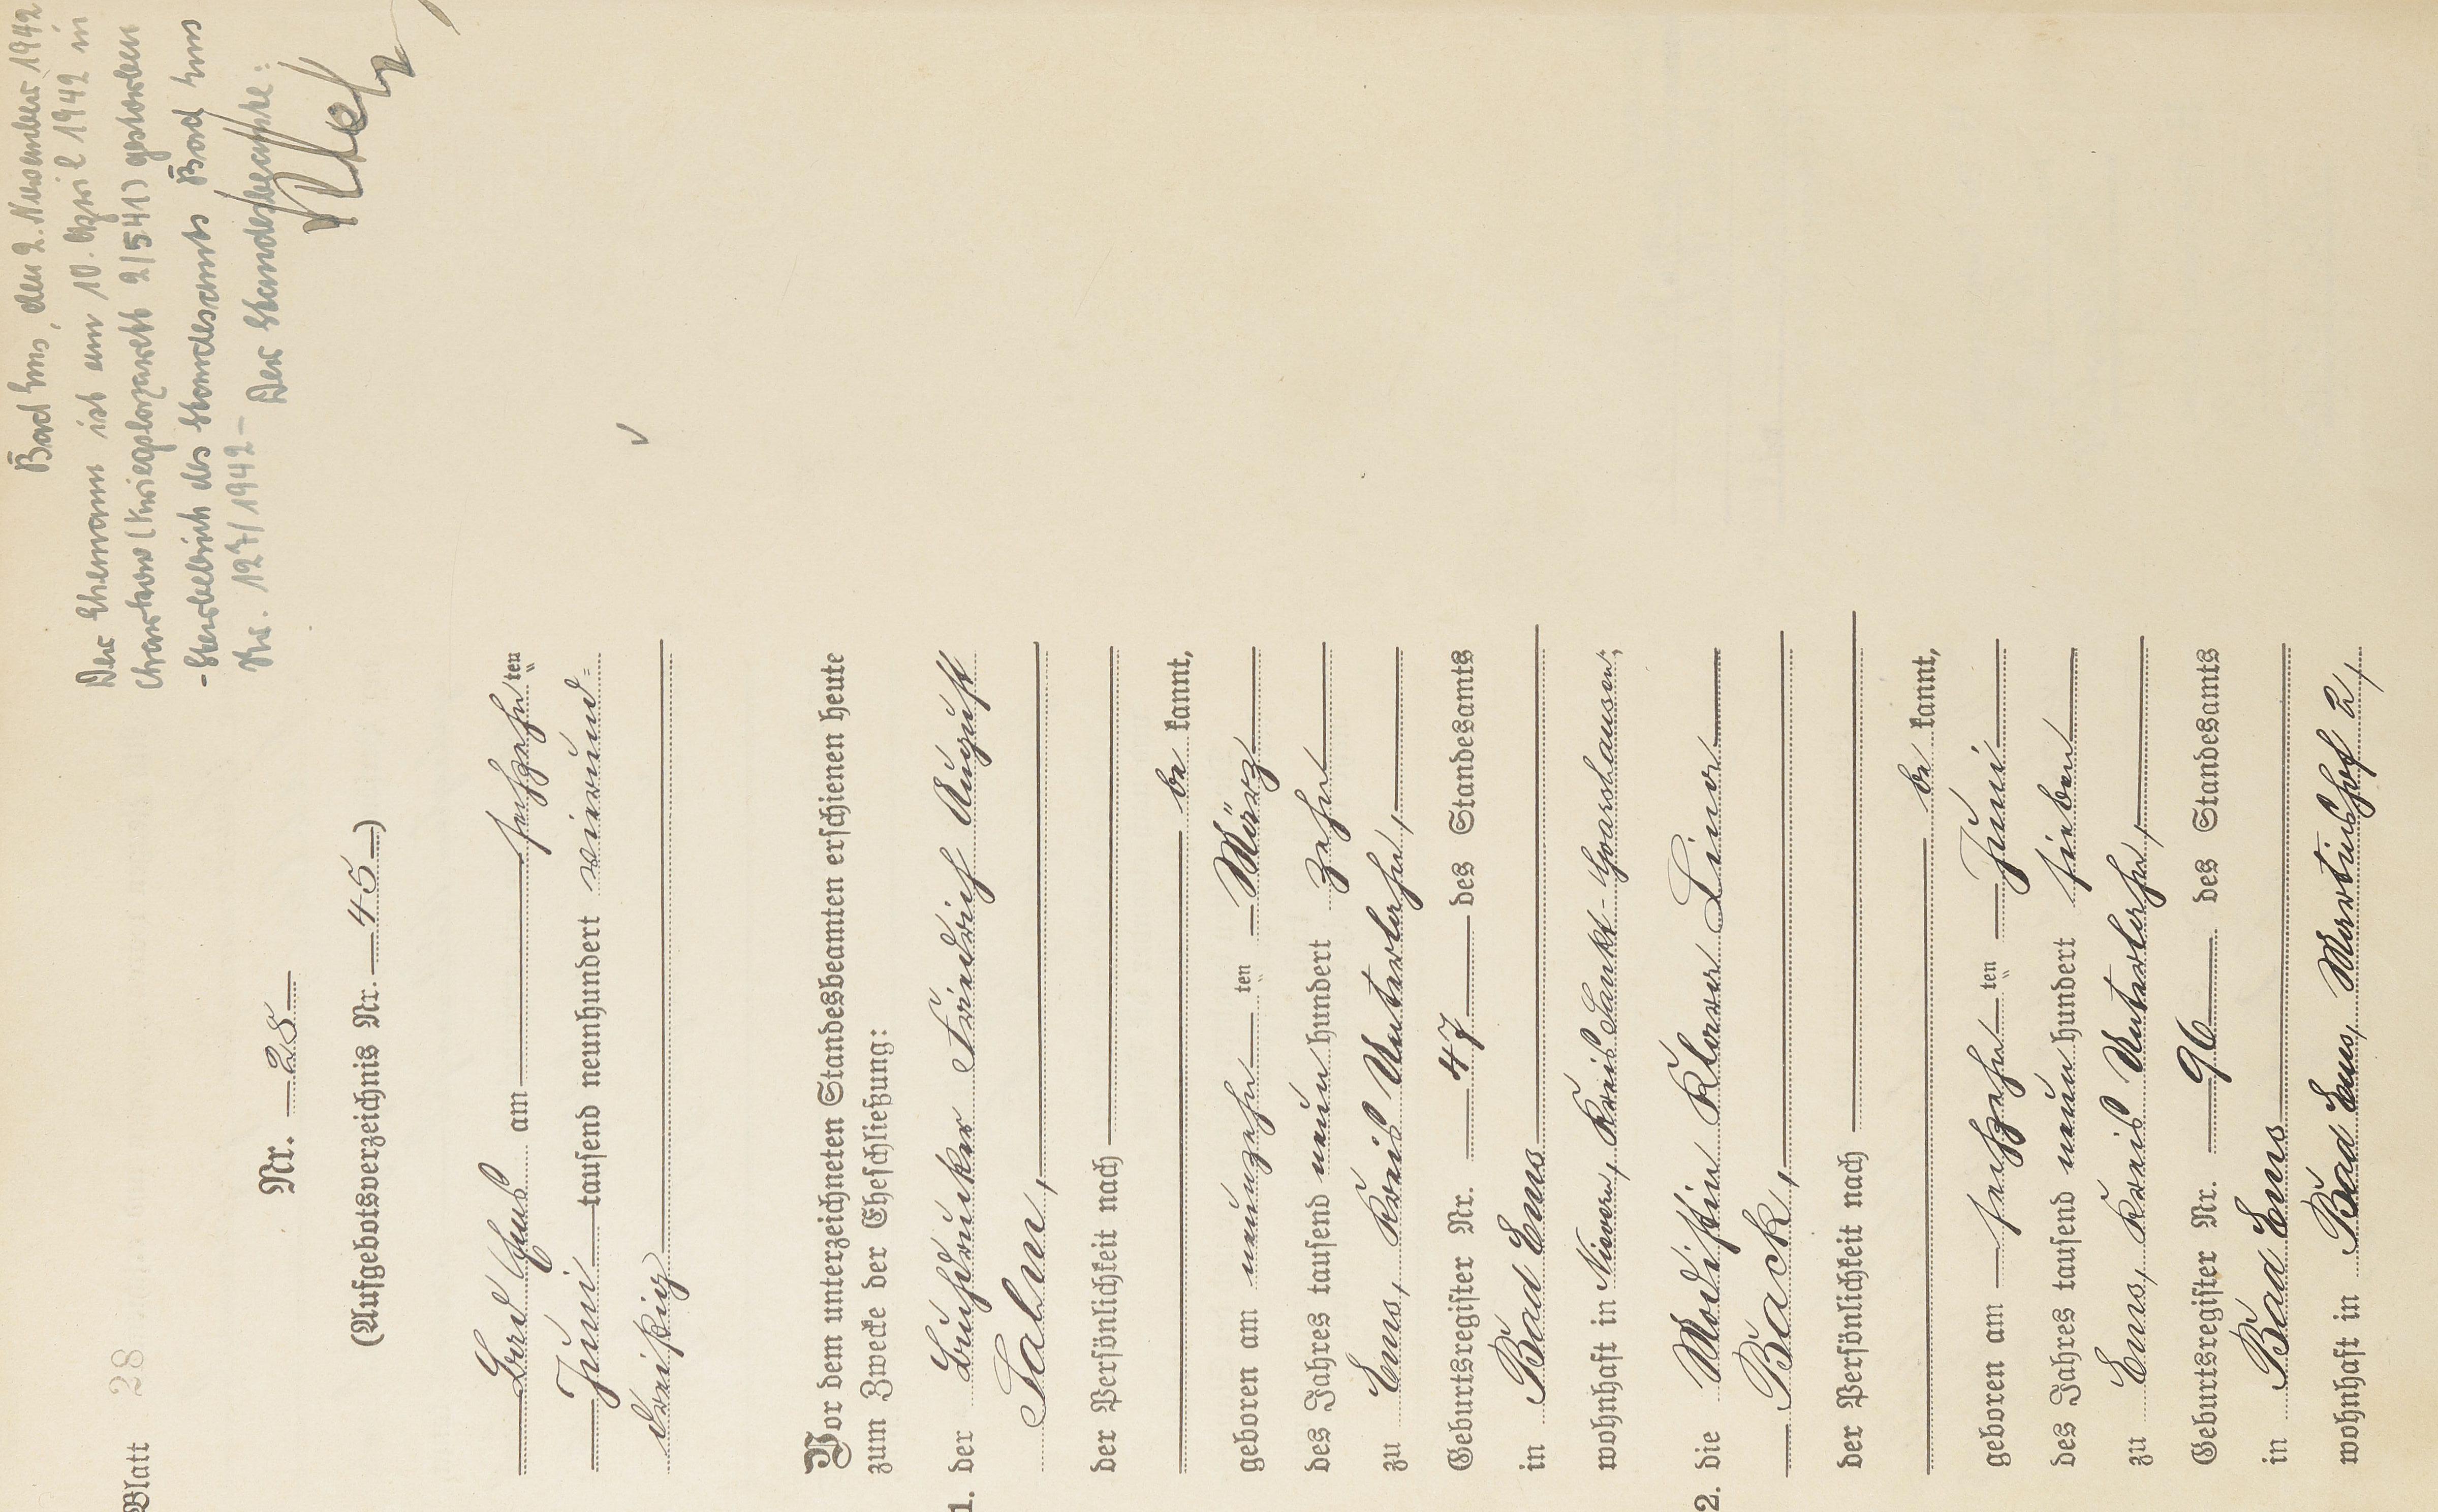 Blatt 28
Bad Ems, den 2. November 1942
Der Ehemann ist am 10. April 1942 in
Charkow (Kriegslazarett 2/541) gestorben
- Sterbebuch des Standesamts Bad Ems
Nr. 127/1942 -
Der Standesbeamte:
Nr. 28
(Aufgebotsverzeichnis Nr. 45)
Bad Ems am sechzehnten
Juni tausend neunhundert vierund=
dreißig
Vor dem unterzeichneten Standesbeamten erschienen heute
zum Zwecke der Eheschließung:
1. der Buchdrucker Friedrich August
Salm,
der Persönlichkeit nach
be kannt,
geboren am neunzehn ten März
des Jahres tausend neun hundert zehn
zu Ems, Kreis Unterlahn,
Geburtsregister Nr. 47 des Standesamts
in Bad Ems
wohnhaft in Nievern, Kreis Sankt-Goarshausen;
2. die Modistin Klara Lina
Back,
der Persönlichkeit nach
be kannt,
geboren am sechzehn ten Juni
des Jahres tausend neun hundert sieben
zu Ems, Kreis Unterlahn,
Geburtsregister Nr. 96 des Standesamts
in Bad Ems
wohnhaft in Bad Ems, 2,